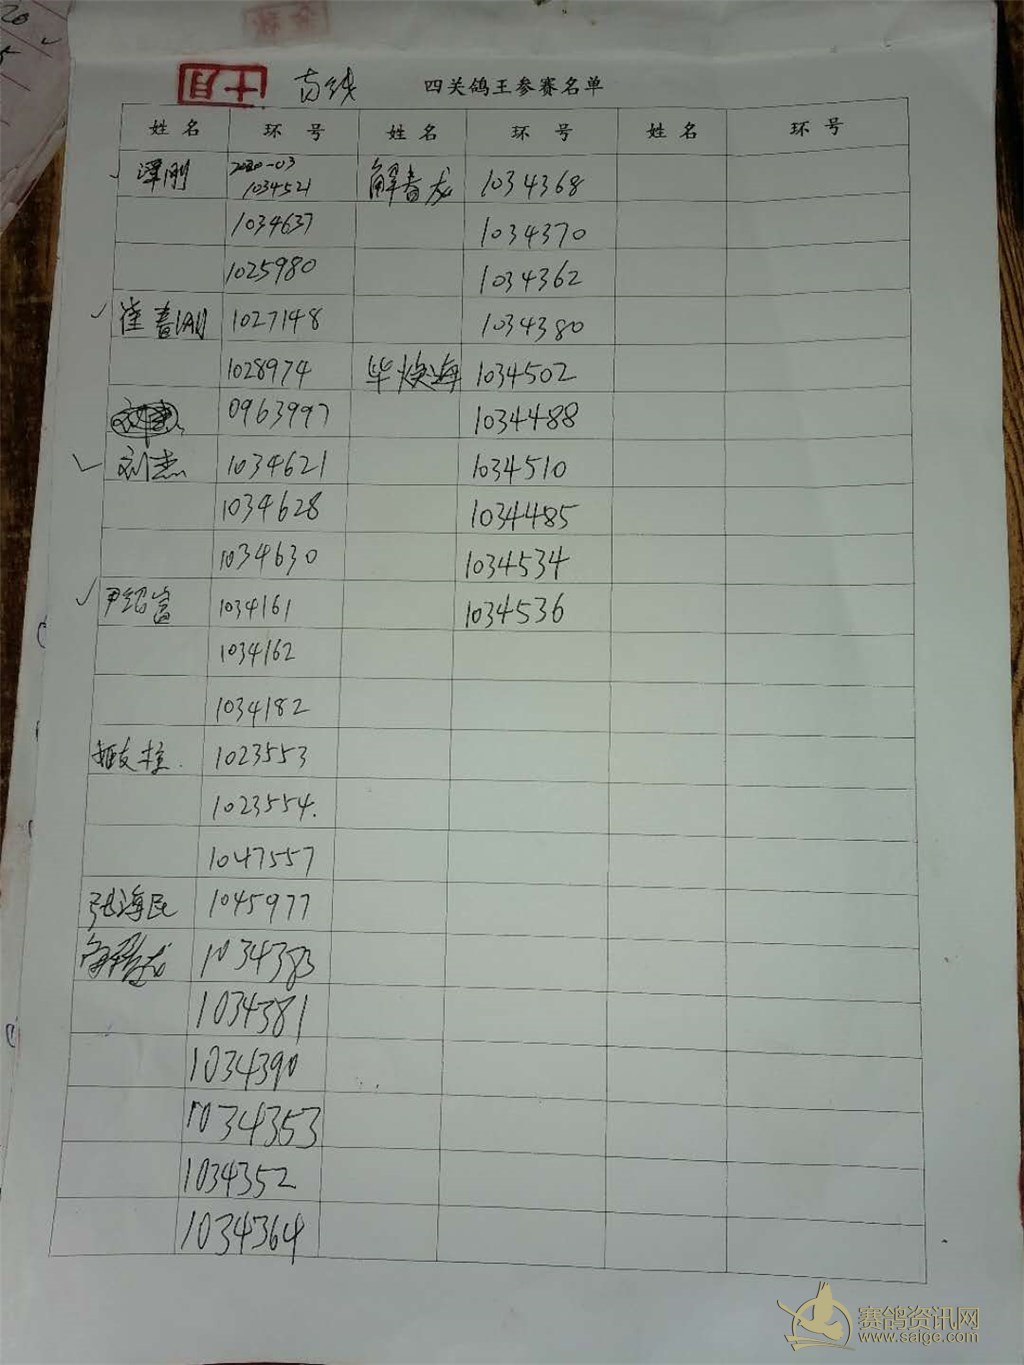 十月 南线 四关鸽王参赛名单
姓 名 环 号 姓 名 环 号 姓 名 环 号
谭刚 2020-03 1034521 解春龙 1034368
1034637 1034370
1025980 1034362
崔春 1027148 1034380
1028974 毕焕海 1034502
0963997 1034488
刘杰 1034621 1034510
1034628 1034485
1034630 1034534
尹绍富 1034161 1034536
1034162
1034182
友柱 1023553
1023554.
1047557
张海民 1045977
解春龙 1034383
1034381
1034390
1034353
1034352
1034364
赛鸽资讯网
www.saige.com